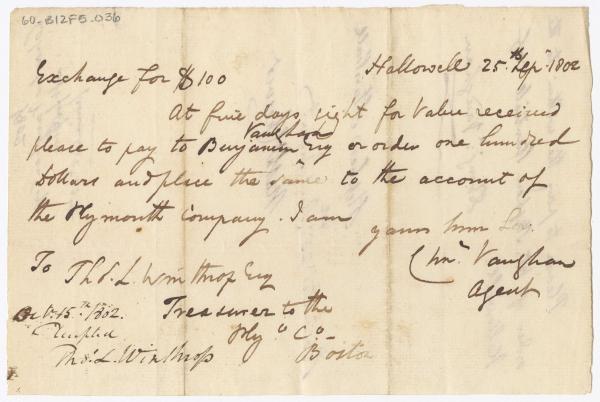 60-B12F5-036
Hallowell 25th Sepr 1802
Exchange for $100
At five days sight for Value received
please to pay to Benjamin Vaughan Esq or order one hundred
Dollars and place the same to the account of
the Plymouth Company. I am
yours
Chas. Vaughan
Agent
To Thos. L. Winthrop Esq
Treasurer to the
Plyo Co
Boston
Octr. 15th 1802.
Accepted
Thos. L. Winthrop